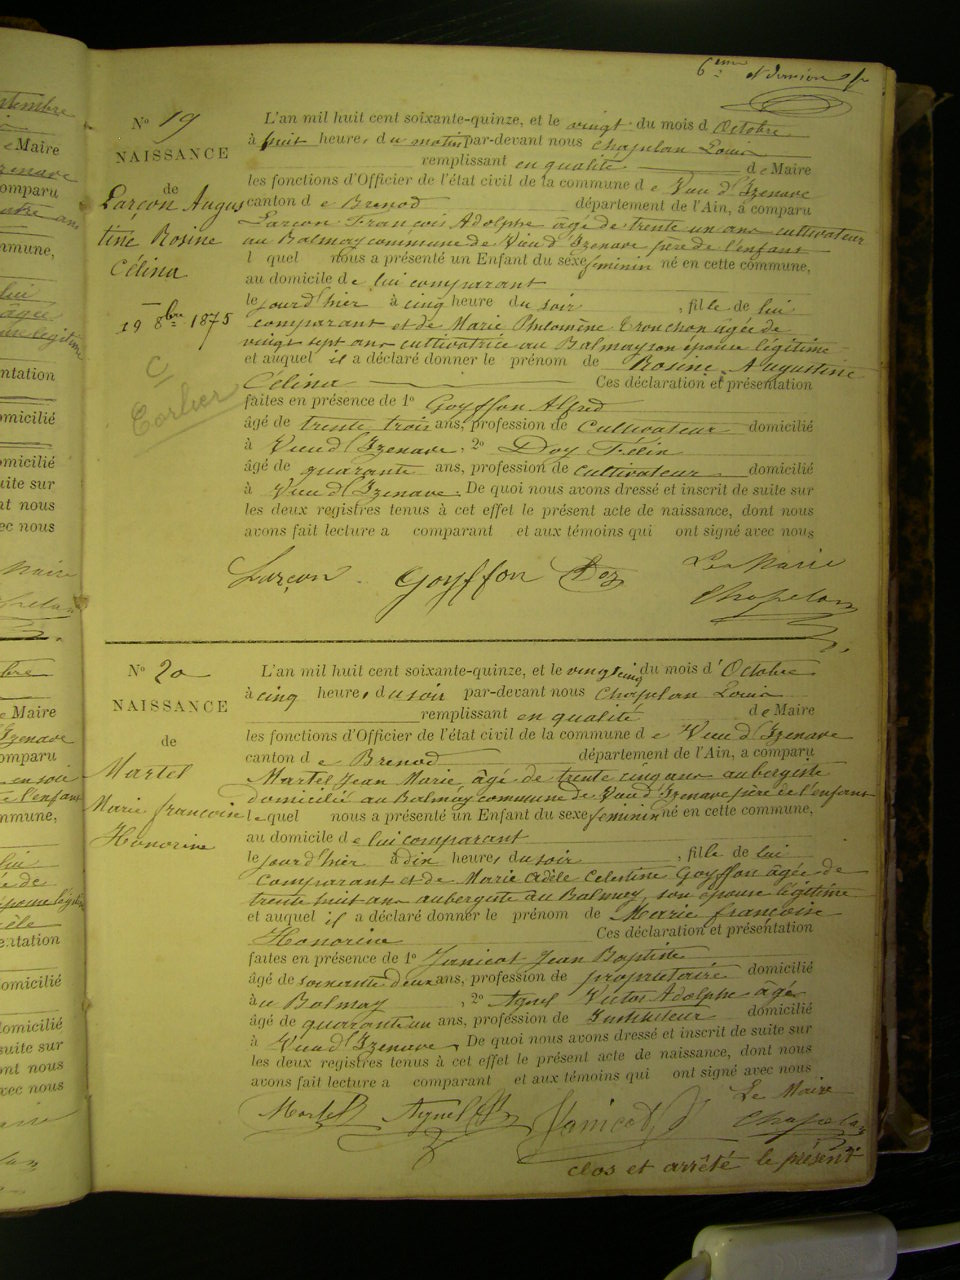 6ème et dernier
N° 19
NAISSANCE
de
Larçon Augus
tine Rosine
Célina
19 8bre 1875
L'an mil huit cent soixante-quinze, et le vingt du mois d'Octobre
à huit heures du matin par-devant nous Chapelan Louis
remplissant en qualité de Maire
les fonctions d'Officier de l'état civil de la commune de Vieu d'Izenave
canton de Brenod département de l'Ain, a comparu
Larçon François Adolphe âgé de trente un ans cultivateur
au Balmay commune de Vieu d'Izenave père de l'enfant
lequel nous a présenté un Enfant du sexe feminin né en cette commune,
au domicile de lui comparant
le jour d'hier à cinq heure du soir, fille de lui
comparant et de Marie Philomène Tronchon agée de
vingt sept ans cultivatrice au Balmay son épouse légitime
et auquel il a déclaré donner le prénom de Rosine Augustine
Célina Ces déclaration et présentation
faites en présence de 1° Goyffon Alfred
âgé de trente trois ans, profession de Cultivateur domicilié
à Vieu d'Izenave, 2° Doy Félix
âgé de quarante ans, profession de Cultivateur domicilié
à Vieu d'Izenave. De quoi nous avons dressé et inscrit de suite sur
les deux registres tenus à cet effet le présent acte de naissance, dont nous
avons fait lecture a comparant et aux témoins qui ont signé avec nous
Larçon Goyffon Doy Le Maire
Chapelan
N° 20
NAISSANCE
de
Martel
Marie françoise
Honorine
L'an mil huit cent soixante-quinze, et le vingt cinq du mois d'Octobre
à cinq heures du soir par-devant nous Chapelan Louis
remplissant en qualité de Maire
les fonctions d'Officier de l'état civil de la commune de Vieu d'Izenave
canton de Brenod département de l'Ain, a comparu
Martel Jean Marie âgé de trente cinq ans aubergiste
domicilié au Balmay commune de Vieu d'Izenave père de l'enfant
lequel nous a présenté un Enfant du sexe feminin né en cette commune,
au domicile de lui comparant
le jour d'hier à dix heures du soir, fille de lui
comparant et de Marie Adèle Celestine Goyffon âgée de
trente huit ans aubergiste au Balmay, son épouse légitime
et auquel il a déclaré donner le prénom de Marie françoise
Honorine Ces déclaration et présentation
faites en présence de 1° Janicot Jean Baptiste
âgé de soixante deux ans, profession de propriétaire domicilié
au Balmay, 2° Agnel Victor Adolphe âgé
âgé de quarante un ans, profession de Instituteur domicilié
à Vieu d'Izenave. De quoi nous avons dressé et inscrit de suite sur
les deux registres tenus à cet effet le présent acte de naissance, dont nous
avons fait lecture a comparant et aux témoins qui ont signé avec nous
Le Maire
Martel Agnel Janicot Chapelan
clos et arrêté le présent